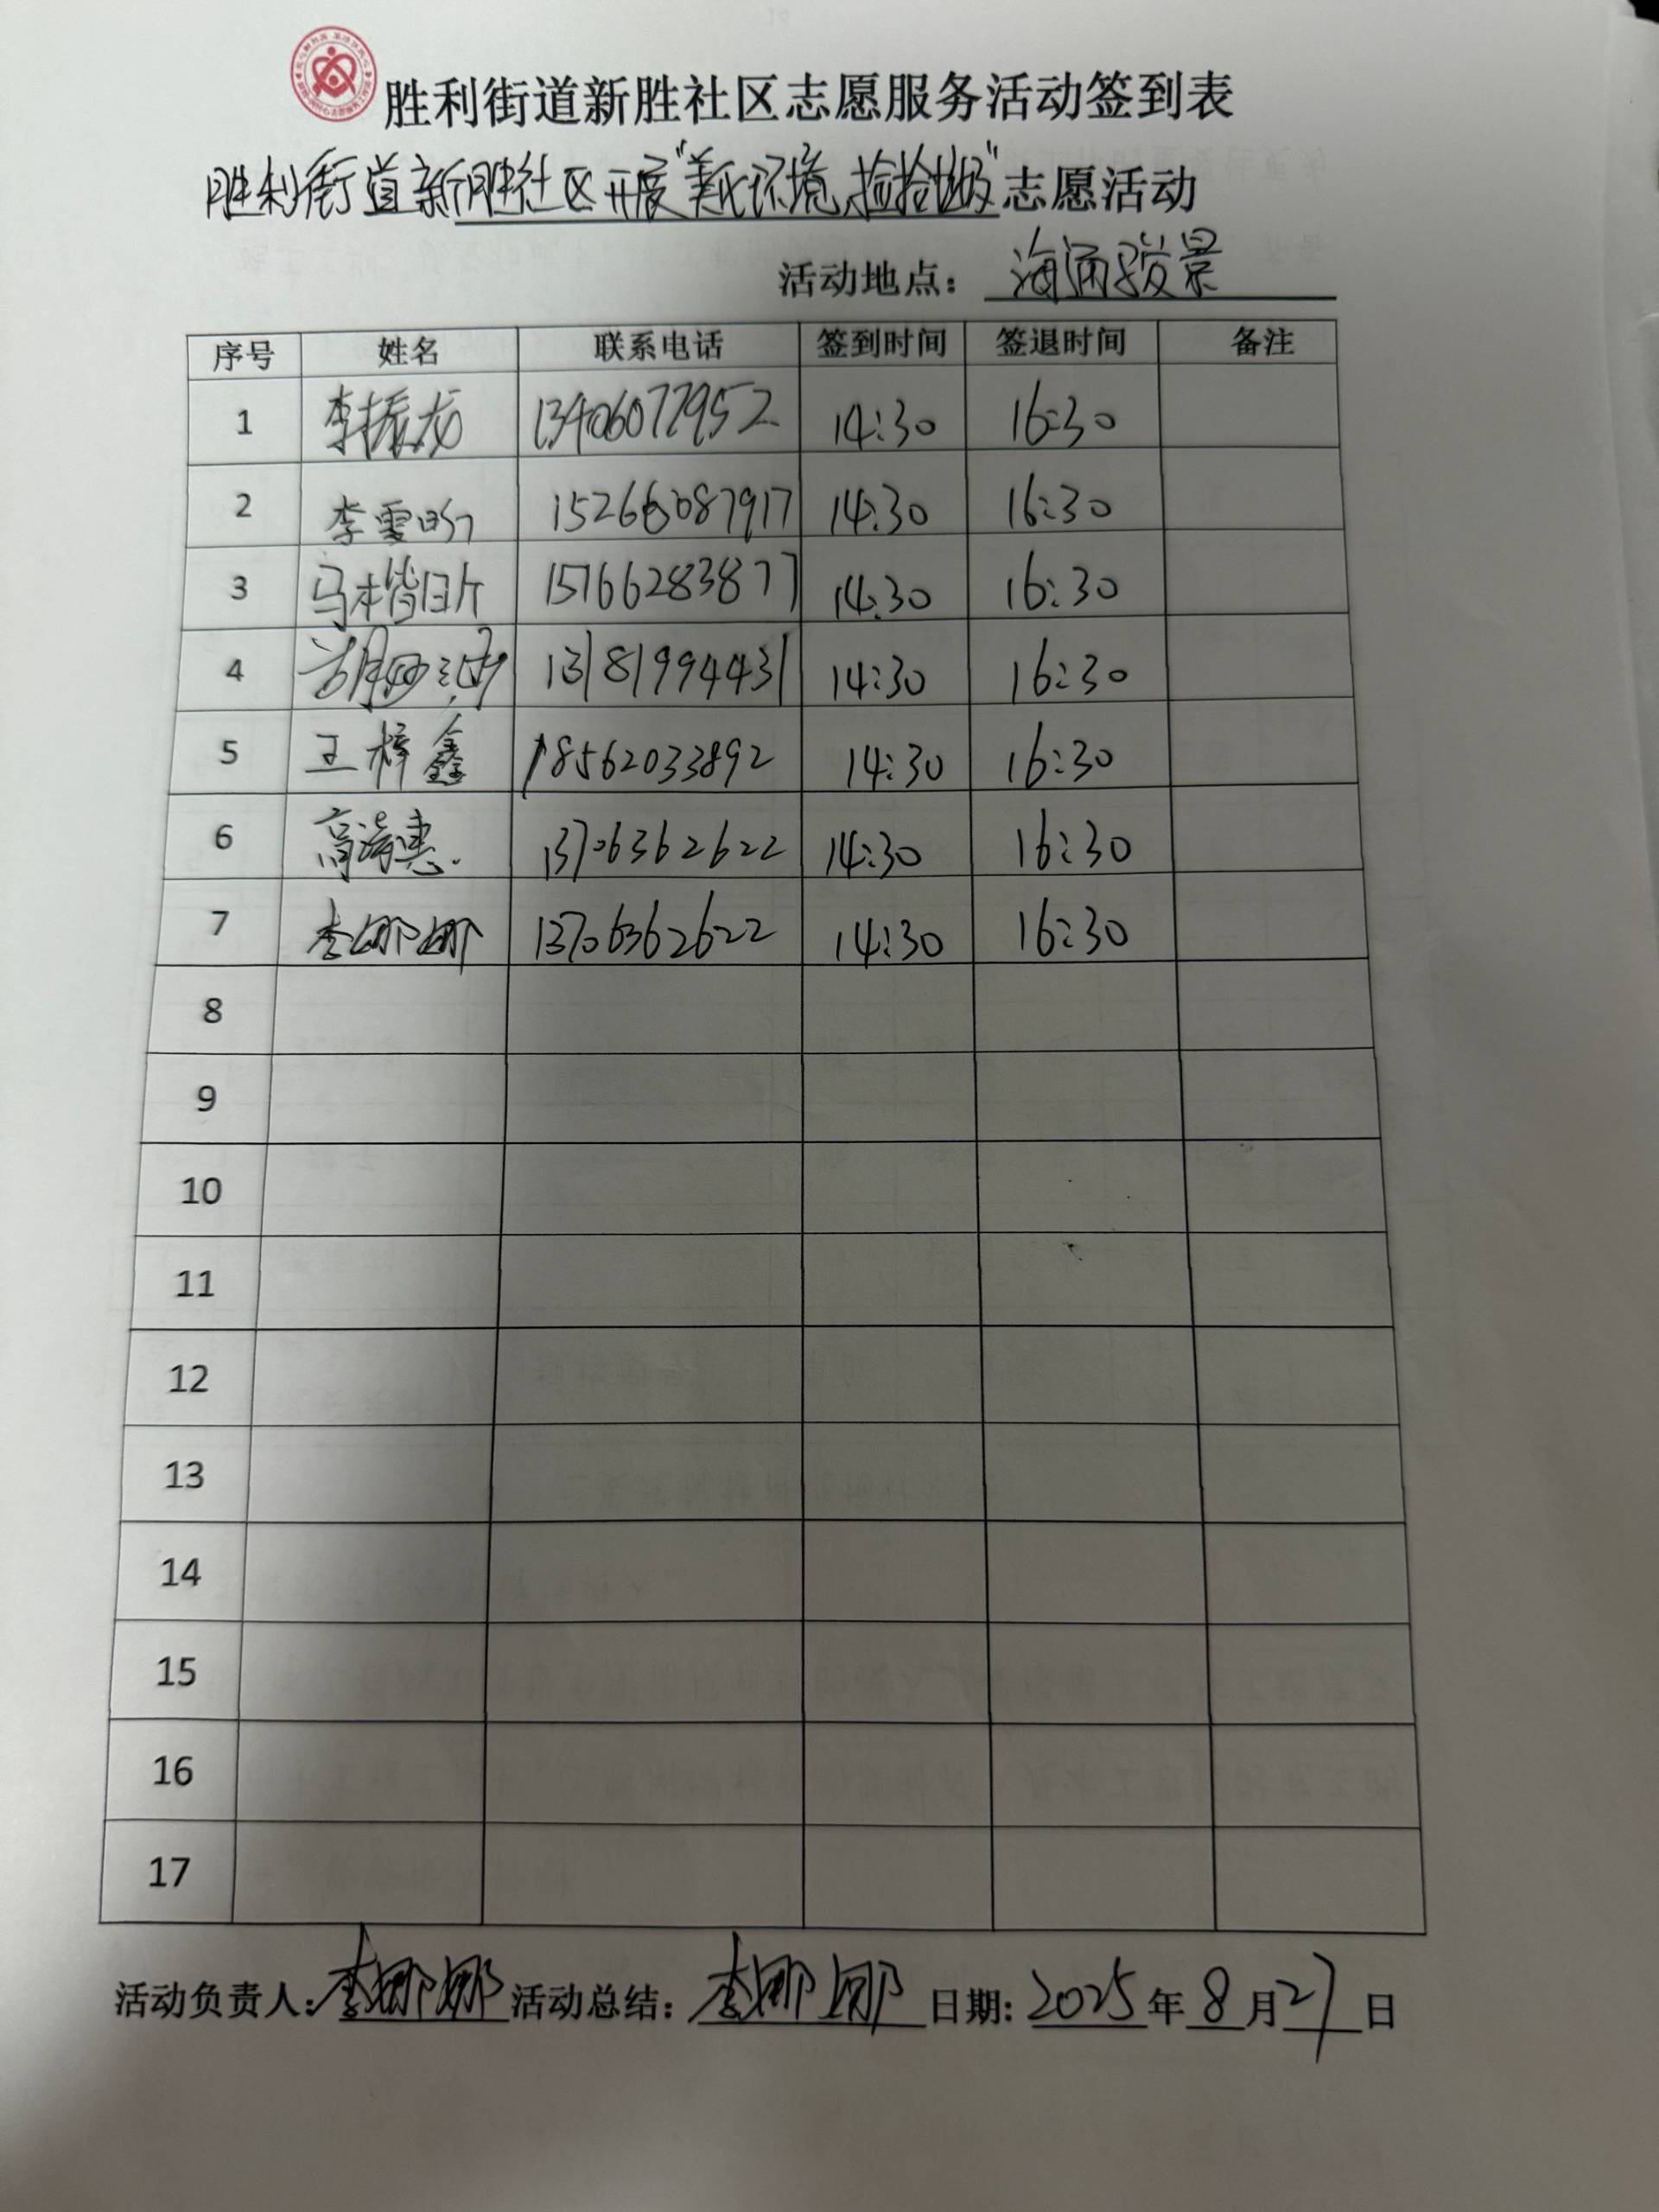 胜利街道新胜社区志愿服务活动签到表
胜利街道新胜社区开展"美化环境,捡拾垃圾"志愿活动
活动地点：海通骏景
序号 姓名 联系电话 签到时间 签退时间 备注
1 李振龙 13406077952 14:30 16:30
2 李雯昕 15266087917 14:30 16:30
3 15766283877 14:30 16:30
4 13181994431 14:30 16:30
5 王梓鑫 18562033892 14:30 16:30
6 高涛惠 13706362622 14:30 16:30
7 李娜娜 13706362622 14:30 16:30
8
9
10
11
12
13
14
15
16
17
活动负责人:李娜娜 活动总结：李娜娜 日期:2025年8月27日